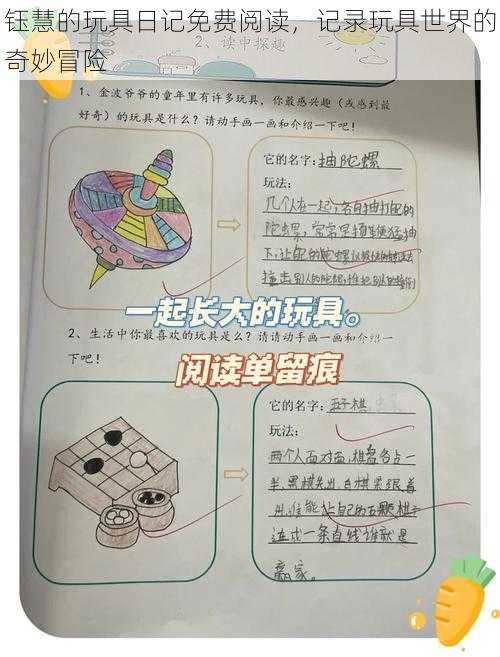 钰慧的玩具日记免费阅读，记录玩具世界的
奇妙冒险
2、读中探趣
1、金波爷爷的童年里有许多玩具，你最感兴趣（或感到最
好奇）的玩具是什么？请动手画一画和介绍一下吧！
它的名字：抽陀螺
玩法：
几个人在一起，各自抽打自己的
陀螺，常常是
下，让 的陀螺以最快的
撞击别人的陀螺，
一起长大的玩具。
2、生活中你最喜欢的玩具是么？请请动手画一画和介绍一
下吧！
阅读单留痕
它的名字：五子棋
玩法：
两个人面对面，棋盘各占一
半，黑棋先出，白棋紧跟着
出，谁能让自己的五颗棋子
连成一条直线谁就是
赢家。